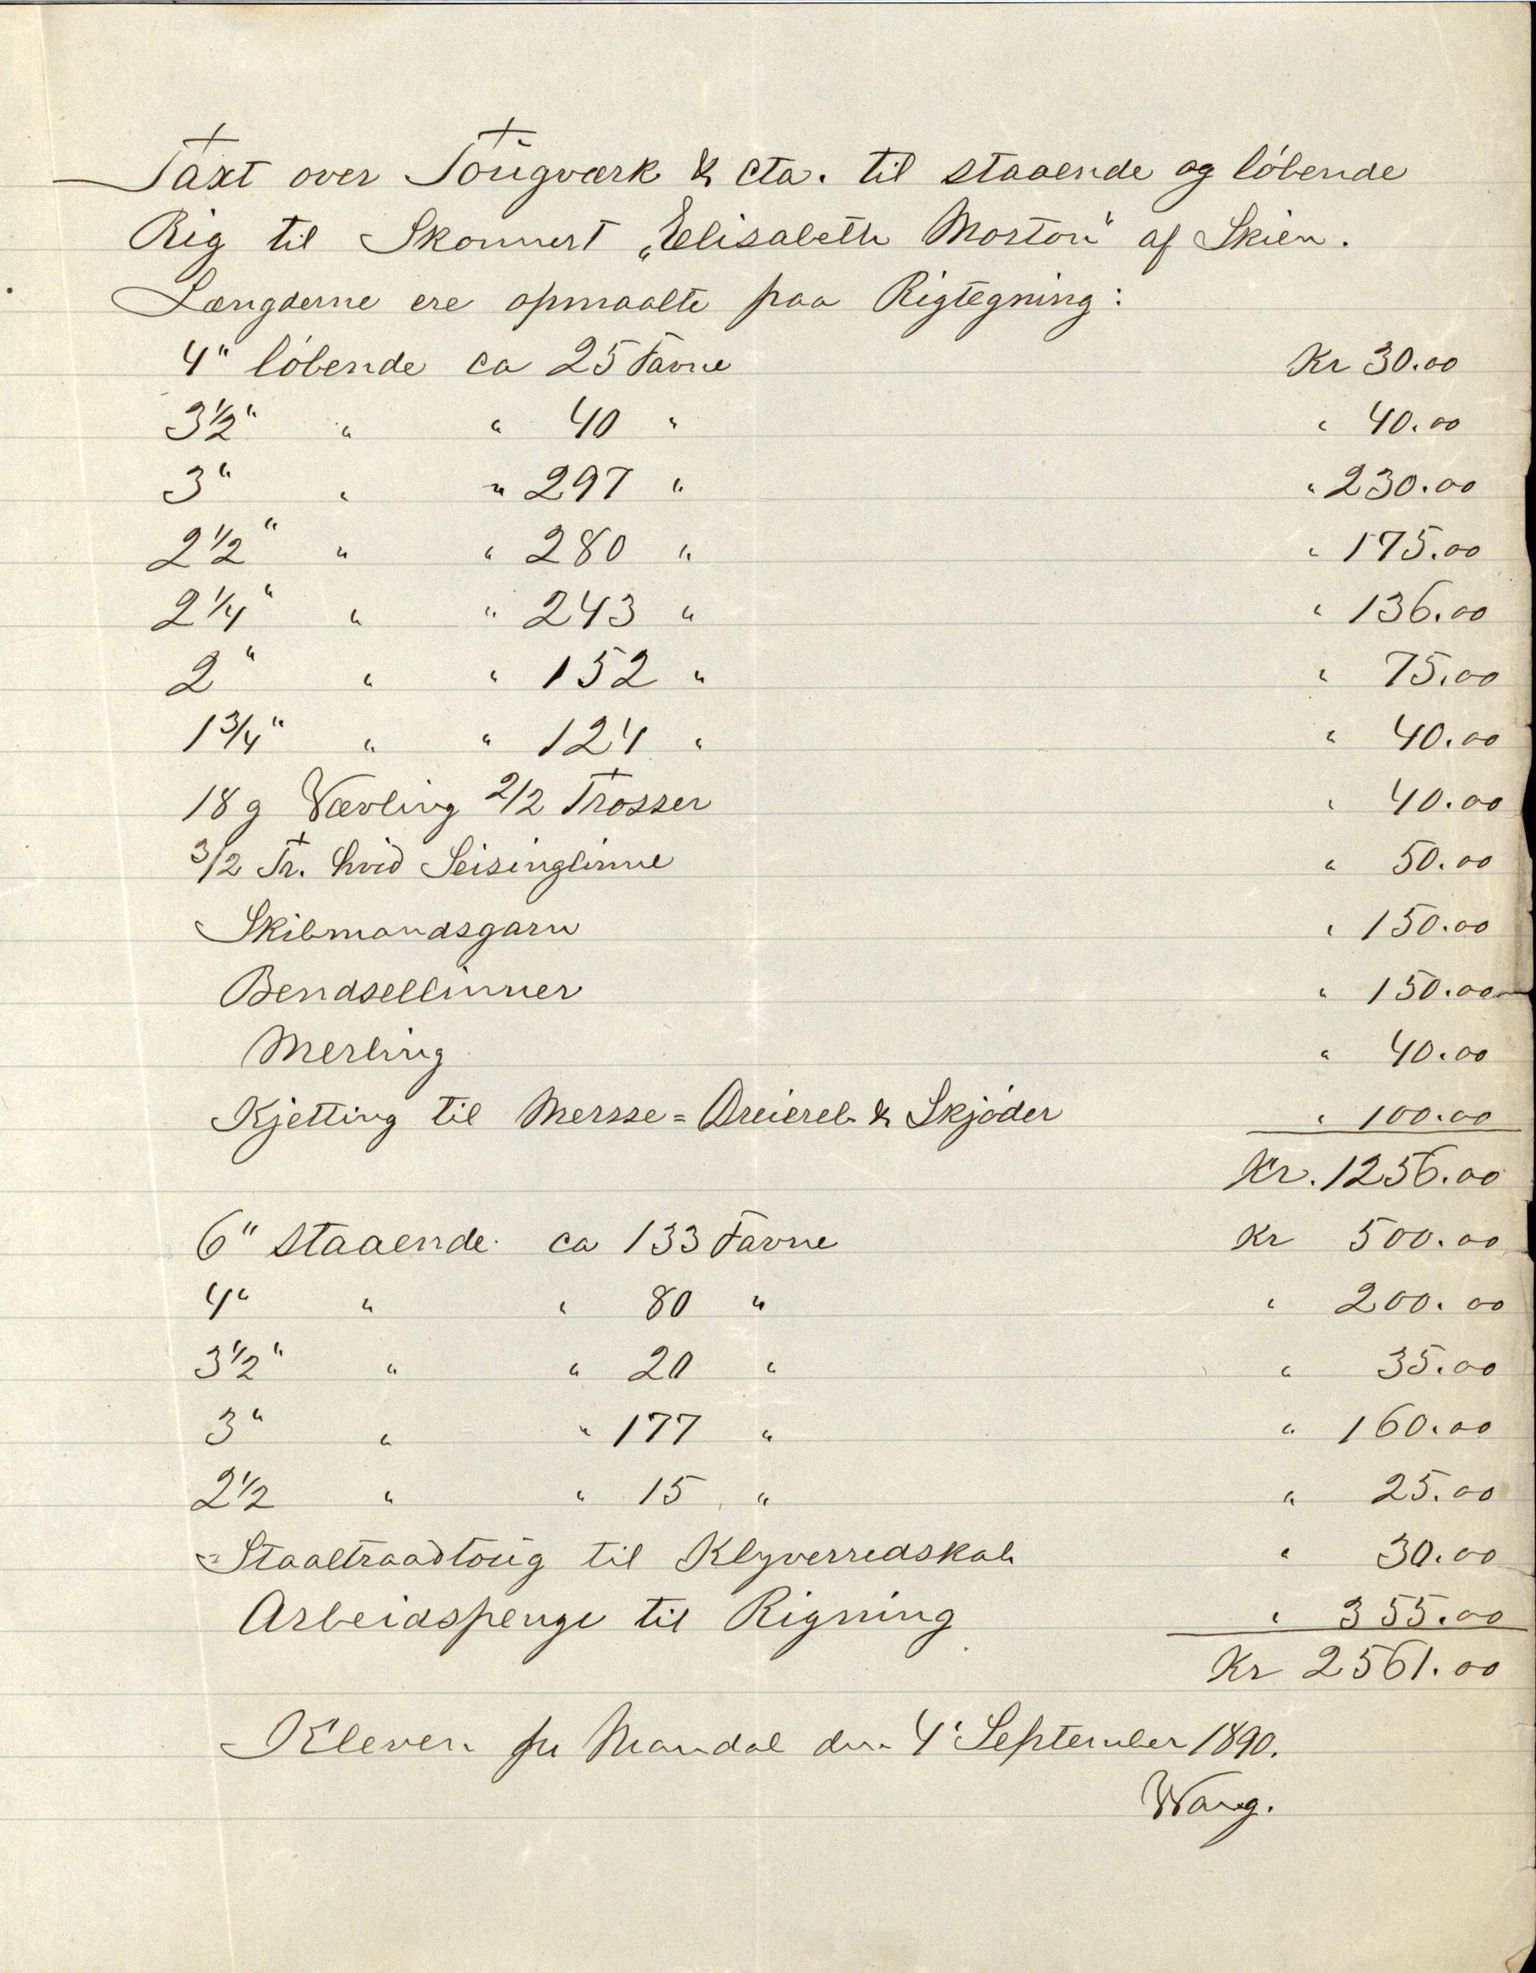 Taxt over Tougværk & cta. til staaende og löbende
Rig til Skonnert „Elisabeth Morton“ af Skien.
Længderne ere opmaalte paa Rigtegning:
4" löbende ca 25 Favne Kr 30.00
3½" " " 40 " " 40.00
3" " " 297 " " 230.00
2½" " " 280 " " 175.00
2¼" " " 243 " " 136.00
2" " " 152 " " 75.00
1¾" " " 124 " " 40.00
18 g Vævling 2/2 Trosser " 40.00
3/2 Tr. hvid Seisinglinne " 50.00
Skibmandsgarn " 150.00
Bendsellinner " 150.00
Merling " 40.00
Kjetting til Mersse= Dreiereb & Skjöder " 100.00
Kr. 1256.00
6" staaende ca 133 Favne Kr 500.00
4" " " 80 " " 200.00
3½" " " 20 " " 35.00
3" " " 177 " " 160.00
2½ " " 15 " " 25.00
Staaltraadtoug til Klyverredskab " 30.00
Arbeidspenge til Rigning " 355.00
Kr 2561.00
Kleven pr Mandal den 4 September 1890.
Wang.